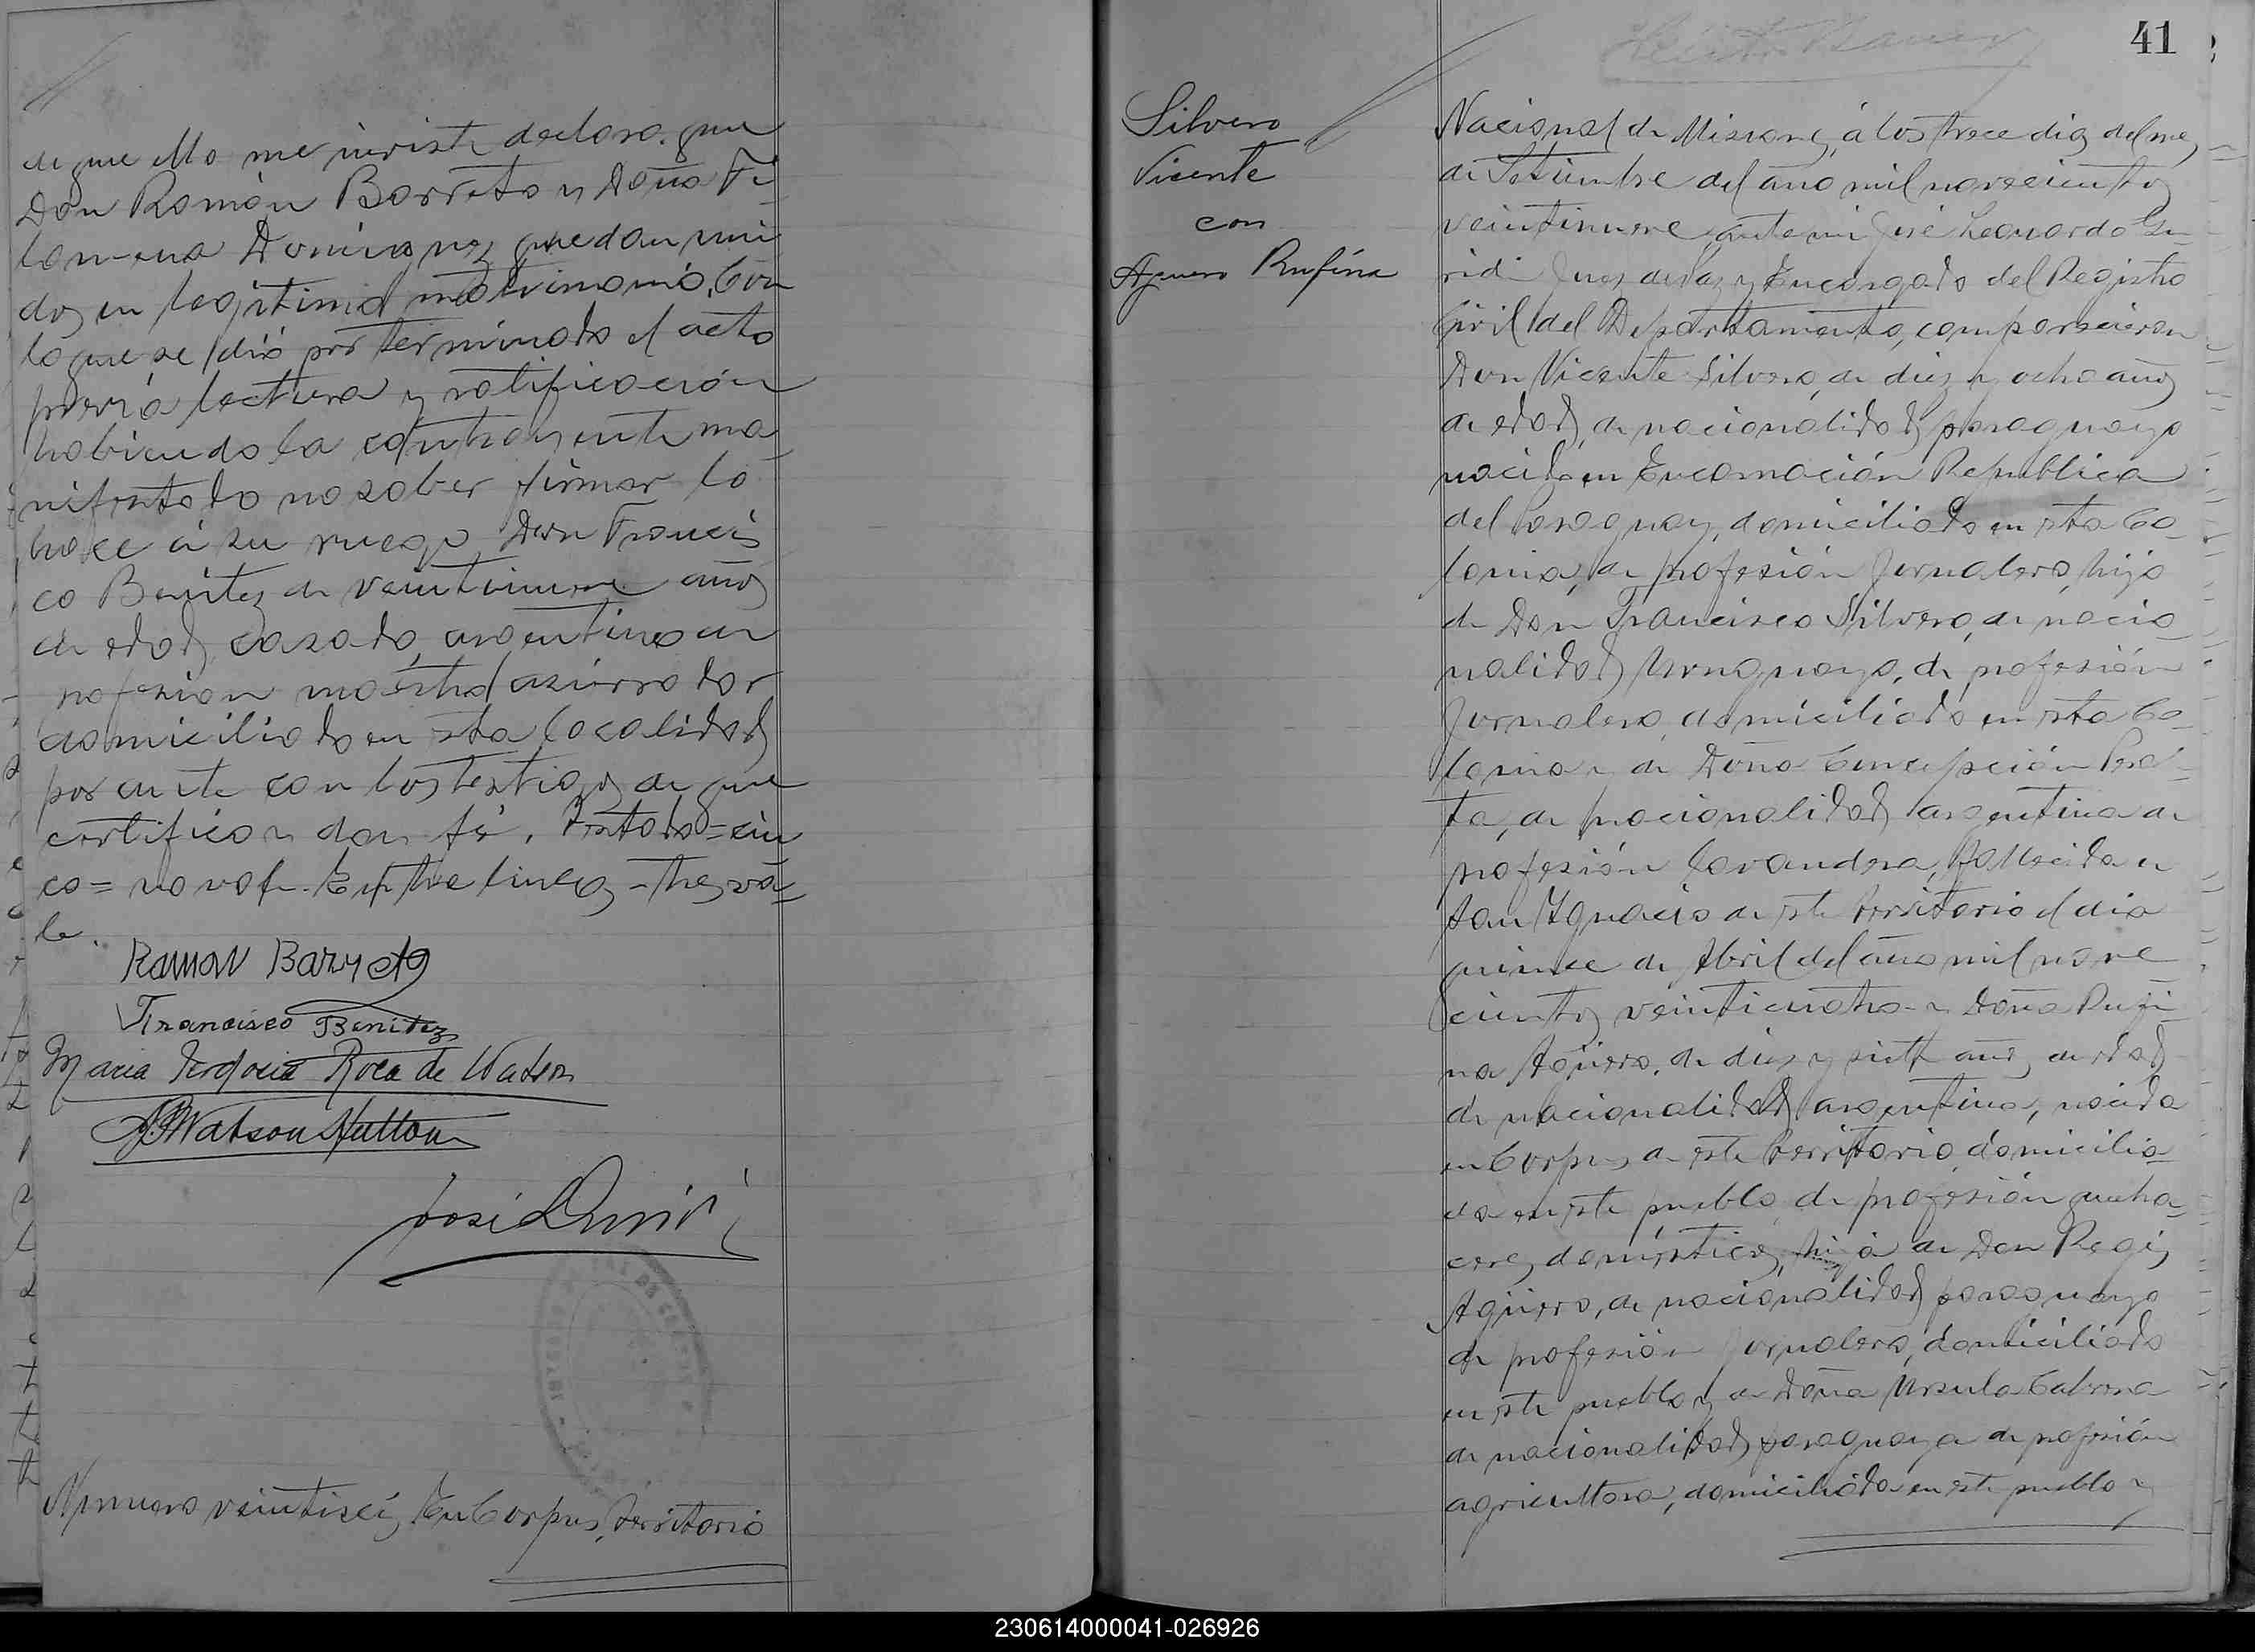 de que ello me inviste declaro que
Don Ramón Barreto y Doña Fi-
lomena Dominguez quedan uni
dos en legítimo matrimonio. Con
lo que se dió por terminado el acto
previa lectura y ratificación
habiendo la contrayente ma-
nifestado no saber firmar lo
hace á su ruego Don Francis
co Benítez de veintinueve años
de edad, casado, argentino de
profesión maestro aserrador
domiciliado en esta localidad
por ante con los testigos de que
certifico y doy fé. Testado=cin
co=no vale. Entre lineas-tres va-
le.
Ramon Barreto
Francisco Benitez
Maria Roca de Watson
Watson Hutton
José L
Número veintiseis, En Corpus, Territorio
41
Silvero
Vicente
con
Aguero Rufina
Nacional de Misiones, á los trece dias del mes
de Setiembre del año mil novecientos
veintinueve, ante mi José Leonardo
Juez de Paz y Encargado del Registro
Civil del Departamento, comparecieron
Don Vicente Silvero, de diez y ocho años
de edad, de nacionalidad paraguayo
nacido en Encarnación República
del Paraguay, domiciliado en esta Co-
lonia, de profesión Jornalero, hijo
de Don Francisco Silvero, de nacio-
nalidad Uruguayo, de profesión
Jornalero, domiciliado en esta Co-
lonia y de Doña Concepción Peral-
ta, de nacionalidad argentina de
profesión lavandera, fallecida en
San Ygnacio de este territorio el dia
quince de Abril del año mil nove
cientos veinticuatro y Doña Rufi-
na Agüero, de diez y siete años de edad
de nacionalidad argentina, nacida
en Corpus de este territorio, domicilia-
da en este pueblo de profesión queha-
ceres domésticos, hija de Don Regis
Agüero, de nacionalidad paraguayo
de profesión Jornalero, domiciliado
en este pueblo y de Doña Ursula Cabrera
de nacionalidad paraguaya de profesión
agricultora, domiciliada en este pueblo y
230614000041-026926